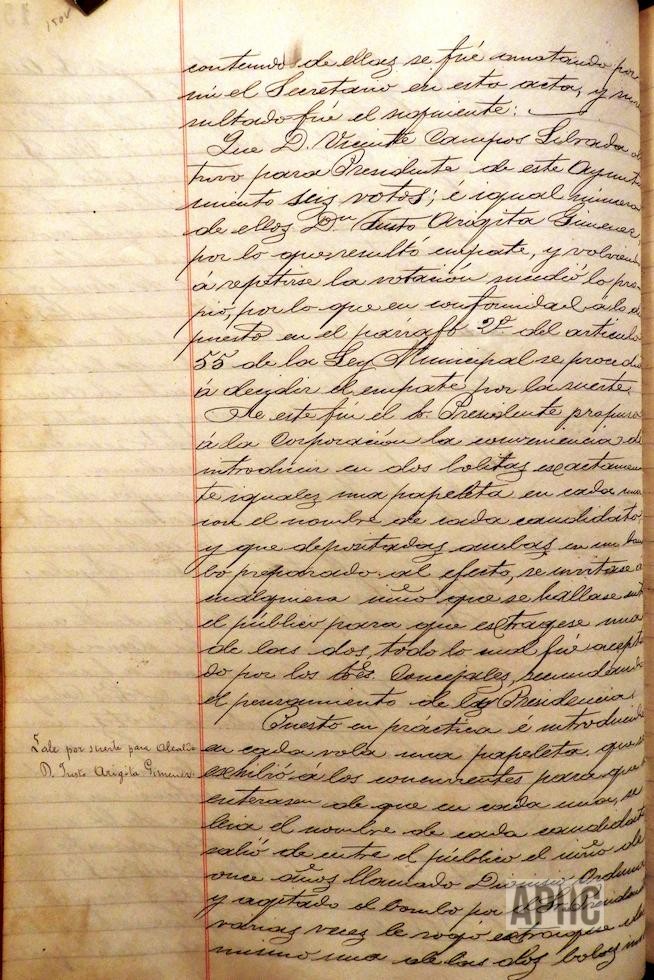 contenido de ellas se fué anotando por
mi el Secretario en esta acta, y su re
sultado fué el siguiente:
Que D. Vicente Campos Labrada ob
tuvo para Presidente de este Ayunta
miento seis votos; é igual número
de ellos Dn Justo Arigita Gimenez,
por lo que resultó empate, y volviendo
á repetirse la votación sucedió lo pro
pio, por lo que en conformidad á lo dis
puesto en el párrafo 2º del artículo
55 de la Ley Municipal se procedió
á decidir el empate por la suerte.
A este fin el Sr. Presidente propuso
á la Corporación la conveniencia de
introducir en dos bolitas esactamen
te iguales una papeleta en cada una
con el nombre de cada candidato,
y que depositadas ambas en un bom
bo preparado al efecto, se invitase á
cualquiera niño que se hallase entre
el público para que estragese una
de las dos, todo lo cual fué acepta
do por los Sres. Concejales, secundando
el pensamiento de la Presidencia.
Puesto en práctica é introducida
en cada bola una papeleta, que se
exhibió á los concurrentes para que se
enterasen de que en cada una, se
leia el nombre de cada candidato
salió de entre el público el niño de
once años llamado Orduna
y agitado el bombo por el Presidente
varias veces le rogó estraigue el
mismo una de las dos bolas
Sale por suerte para Alcalde
D. Justo Arigita Gimenez.
150v
APHC